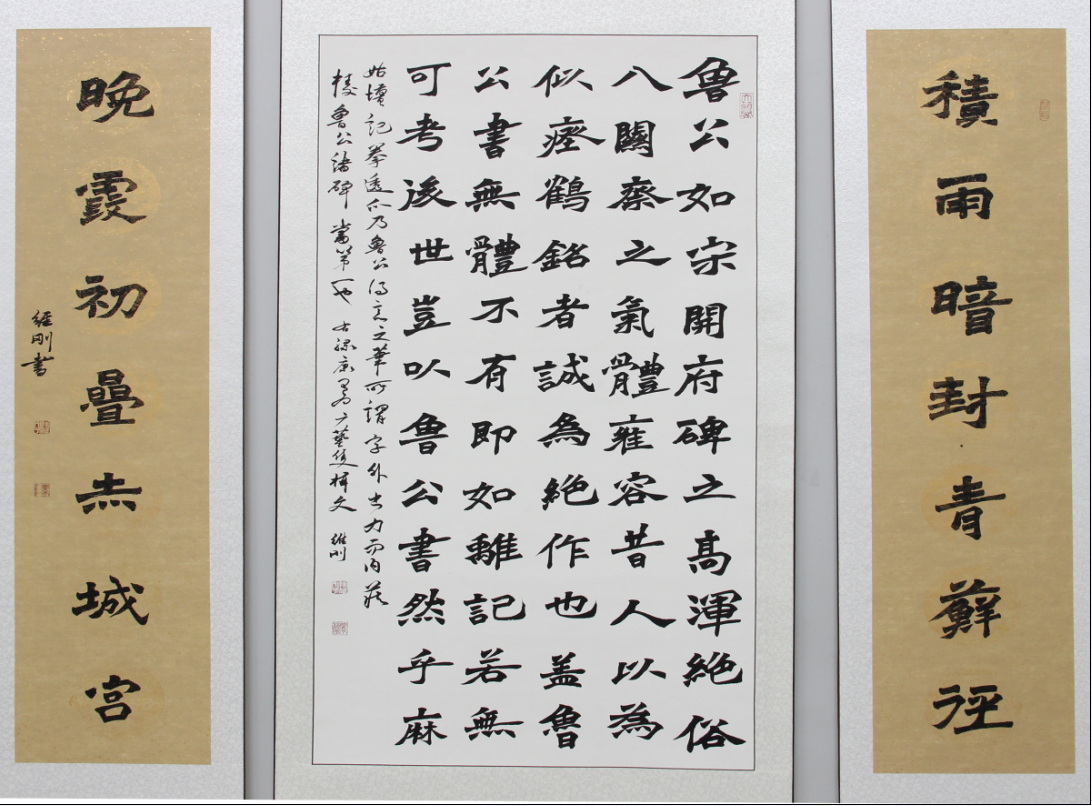 積雨暗封青蘚徑
魯公如宋開府碑之高渾絕俗
八關齋之氣體雍容昔人以為
似瘞鶴銘者誠為絕作也盖魯
公書無體不有即如離記若無
可考後世豈以魯公書然乎麻
姑壇記拳透爪乃魯公得意之筆所謂字外出力而內藏
稜魯公諸碑當第一也 維剛
晚霞初疊赤城宮
維剛書